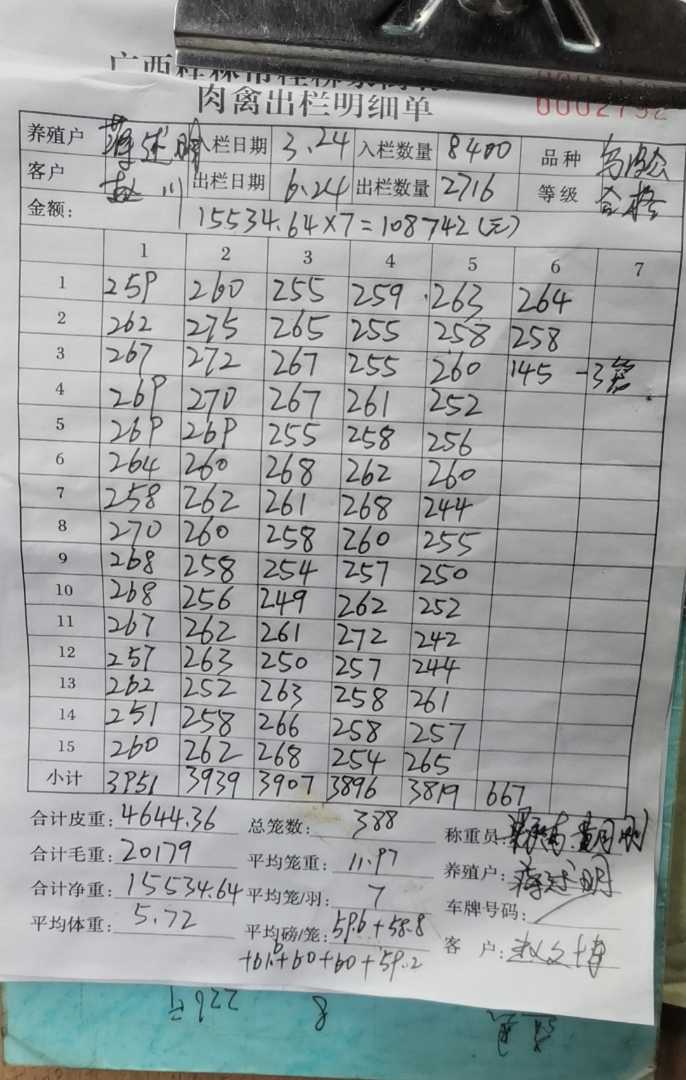 肉禽出栏明细单
0002752
养殖户 入栏日期 3.24 入栏数量 8400 品种
客户 出栏日期 6.24 出栏数量 2716 等级 合格
金额: 15534.64×7=108742(元)
1 2 3 4 5 6 7
1 259 260 255 259 263 264
2 262 275 265 255 258 258
3 267 272 267 255 260 145 -3笼
4 269 270 267 261 252
5 269 269 255 258 256
6 264 260 268 262 260
7 258 262 261 268 244
8 270 260 258 260 255
9 268 258 254 257 250
10 268 256 249 262 252
11 267 262 261 272 242
12 257 263 250 257 244
13 262 252 263 258 261
14 251 258 266 258 257
15 260 262 268 254 265
小计 3951 3939 3907 3896 3819 667
合计皮重: 4644.36 总笼数: 388 称重员:
合计毛重: 20179 平均笼重: 11.97 养殖户:
合计净重: 15534.64 平均笼/羽: 7 车牌号码:
平均体重: 5.72 平均磅/笼: 59.6+58.8 客 户:
+60+60+59.2